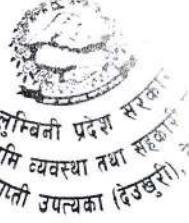 लुम्बिनी प्रदेश सरकार
व्यवस्था तथा सहकारी
उपत्यका (देउखुरी),